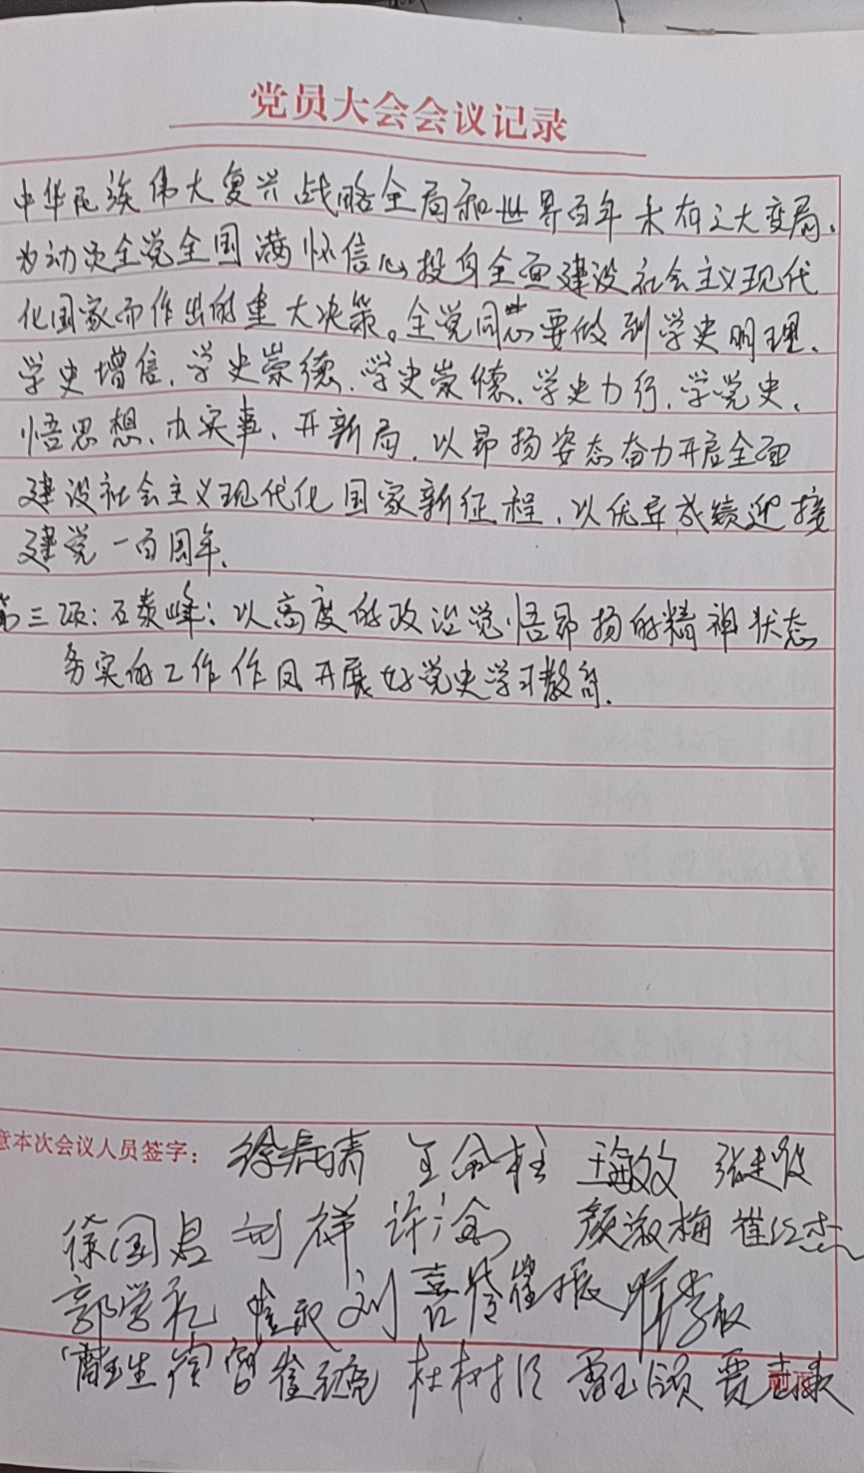 党员大会会议记录
中华民族伟大复兴战略全局和世界百年未有之大变局、
为动员全党全国满怀信心投身全面建设社会主义现代
化国家而作出的重大决策。全党同志要做到学史明理、
学史增信、学史崇德、学史崇德、学史力行、学党史、
悟思想、办实事、开新局、以昂扬姿态奋力开启全面
建设社会主义现代化国家新征程、以优异成绩迎接
建党一百周年、
第三项:石泰峰:以高度的政治觉悟昂扬的精神状态
务实的工作作风开展好党史学习教育、
意本次会议人员签字:
徐国君 刘祥 颜淑梅 崔红杰
郭学礼
杜树